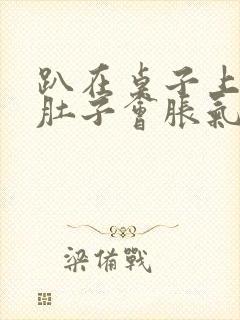 趴在桌子上
肚子會脹氣
梁備戰